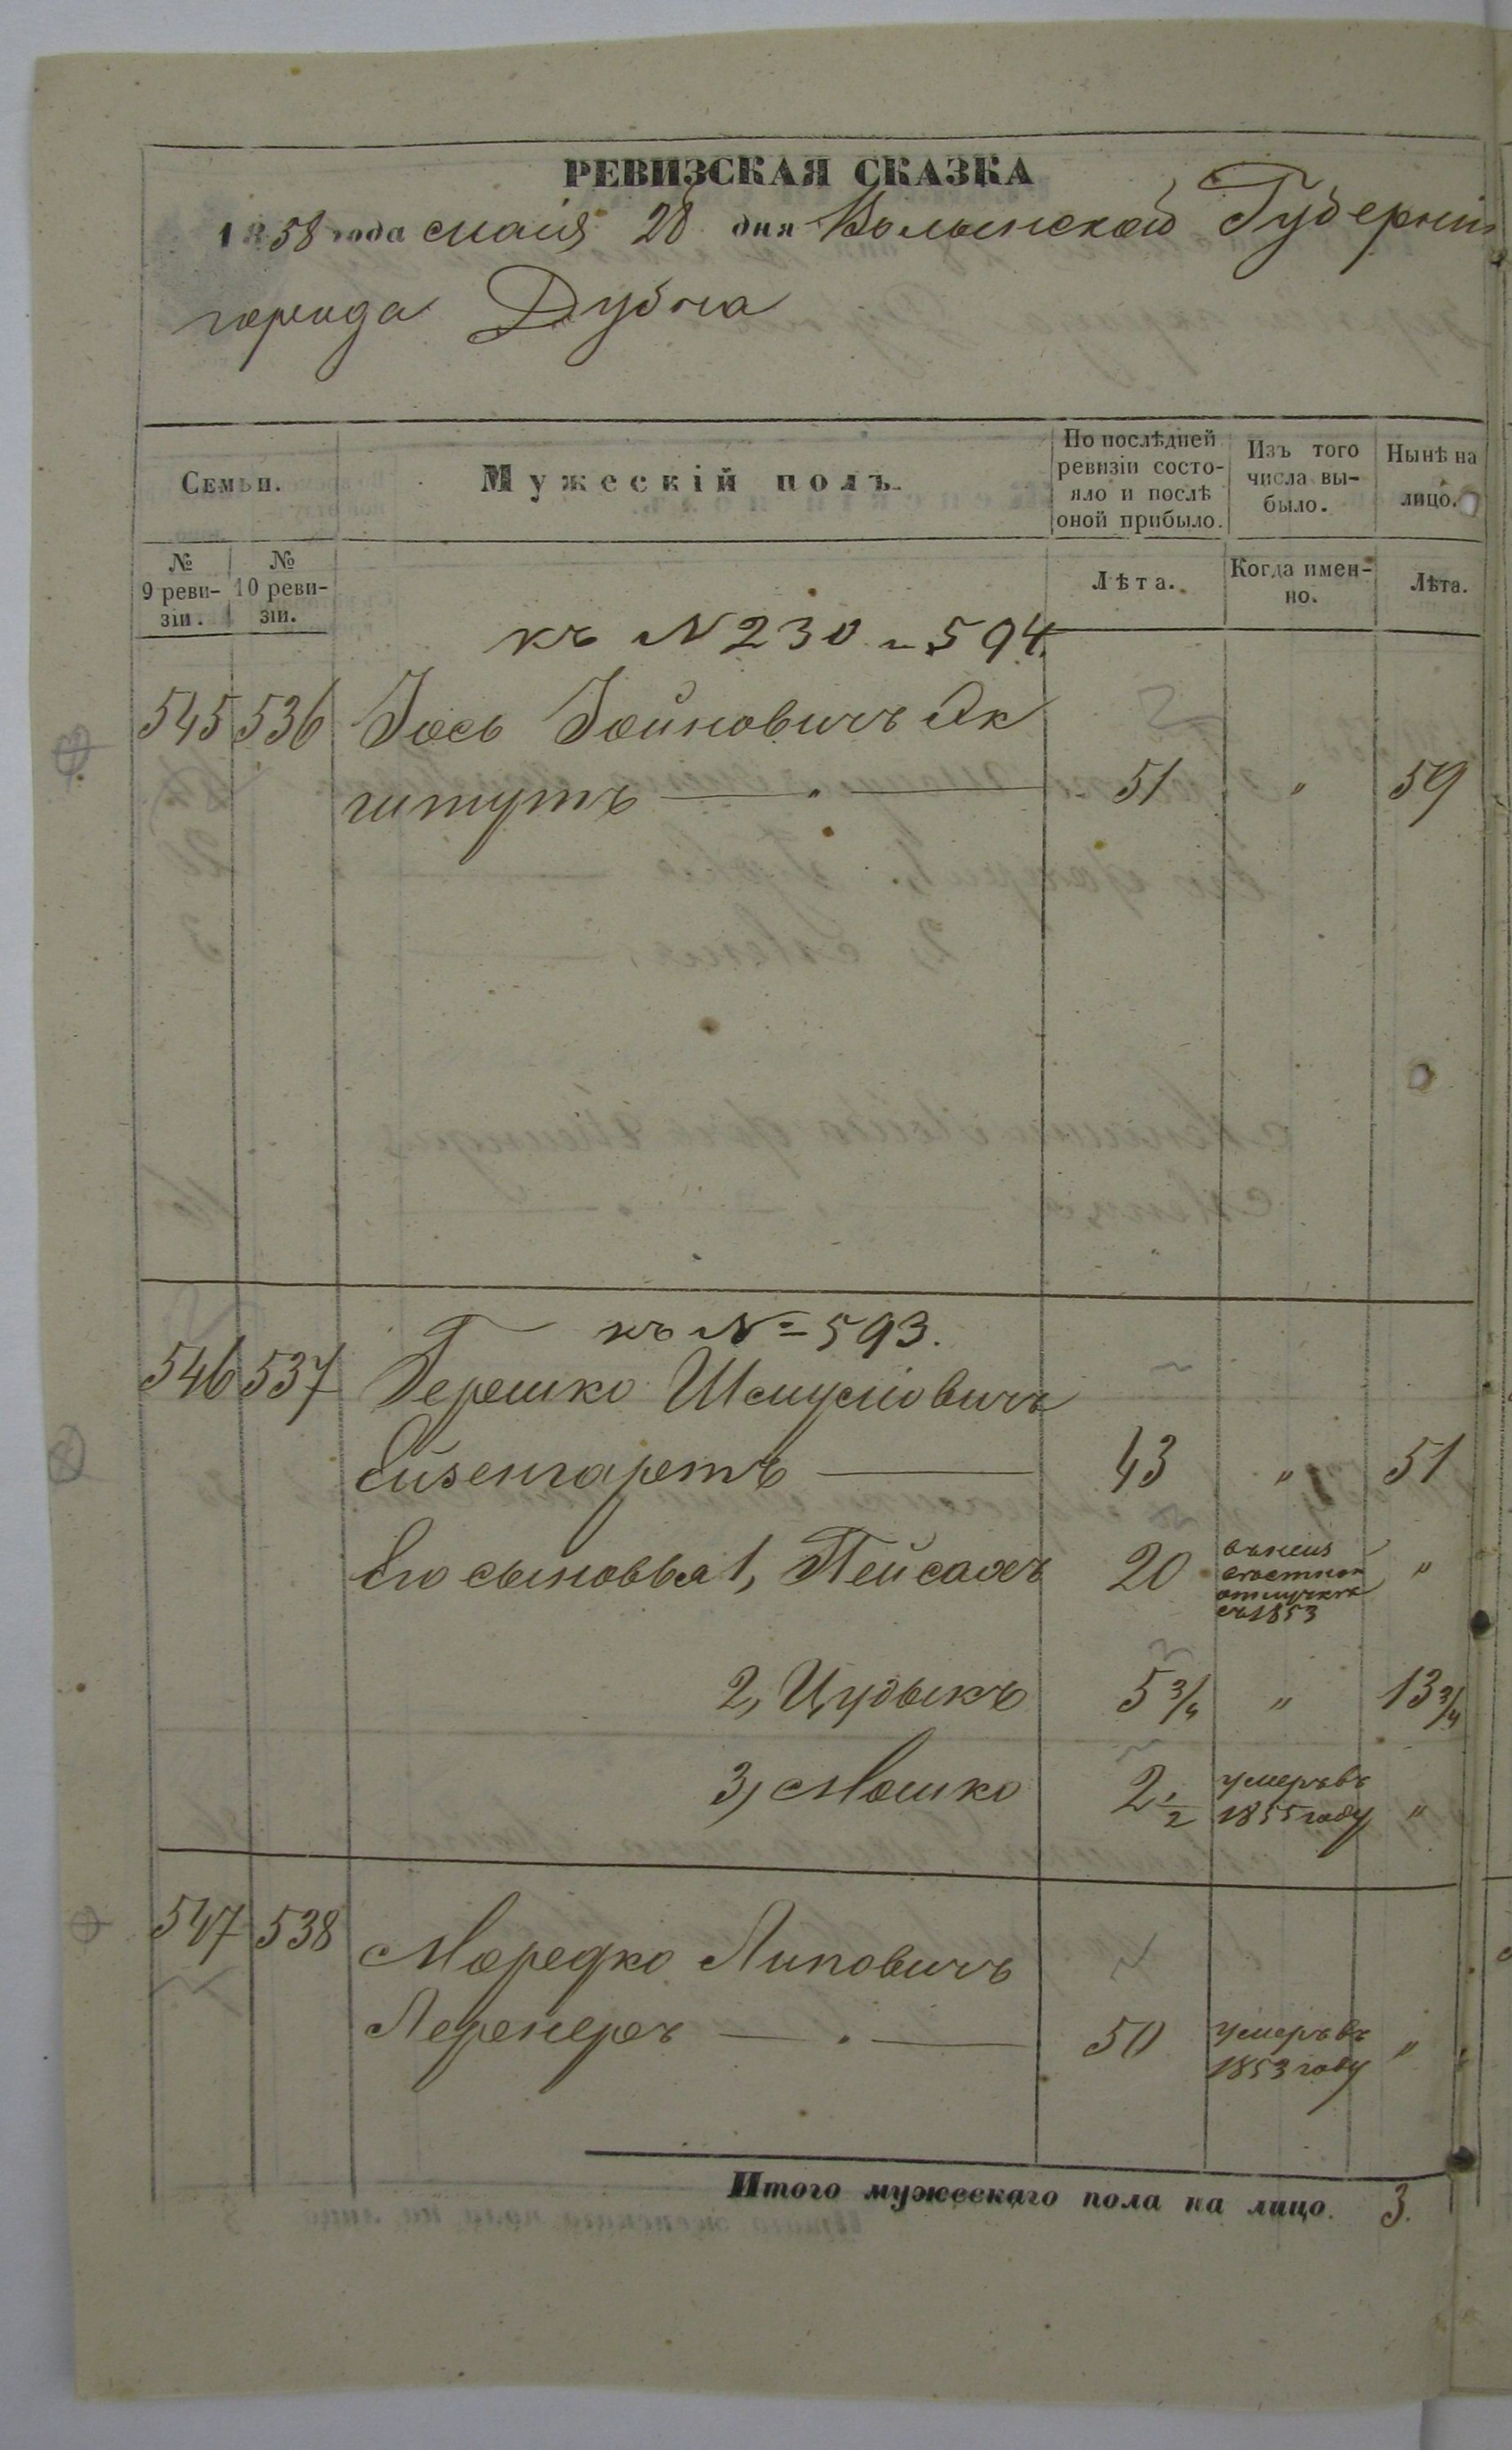 РЕВИЗСКАЯ СКАЗКА
1858 года маія 28 дня Волынской Губерніи
города Дубна
Семьи.
Мужескій полъ.
По послѣдней ревизіи состо-
яло и послѣ
оной прибыло.
Изъ того
числа вы-
было.
Нынѣ на
лицо.
№
9 реви-
зіи.
№
10 реви-
зіи.
Лѣта.
Когда имен-
но.
Лѣта.
къ N 230 и 594.
545 536 Іось Іойновичъ Ак
штутъ 51 " 59
къ № 593.
546 537 Гершко Шмуліовичъ
Ейзенгартъ 43 " 51
Его сыновья 1, Пейсахъ 20 "
отлучкѣ
съ 1853
2, Цудыкъ 5 3/4 " 13 3/4
3, Мошко 2 1/2 умеръ въ
1855 году "
547 538 Мордко Липовичъ
Лернеръ 50 умеръ въ
1853 году "
Итого мужескаго пола на лицо. 3.